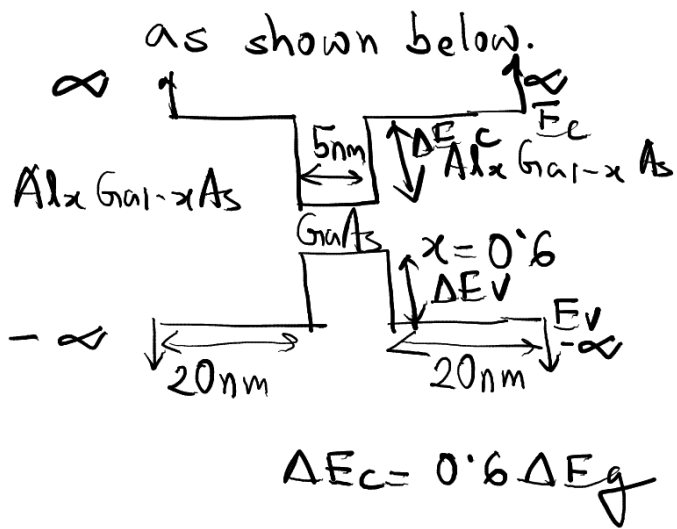 as shown below.
∞ ∞
5nm ΔEc Ec
AlxGa1-xAs AlxGa1-xAs
GaAs x = 0.6
ΔEv
- ∞ Ev -∞
20nm 20nm
ΔEc = 0.6 ΔEg